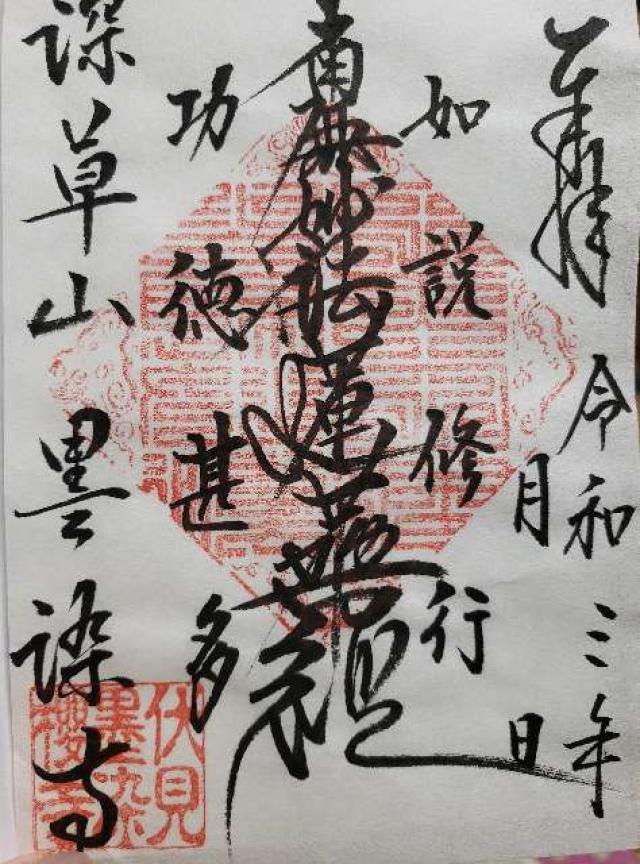 奉拝
令和三年
月 日
如説修行
南無妙法蓮華經
功徳甚多
深草山墨染寺
伏見
墨染
櫻寺